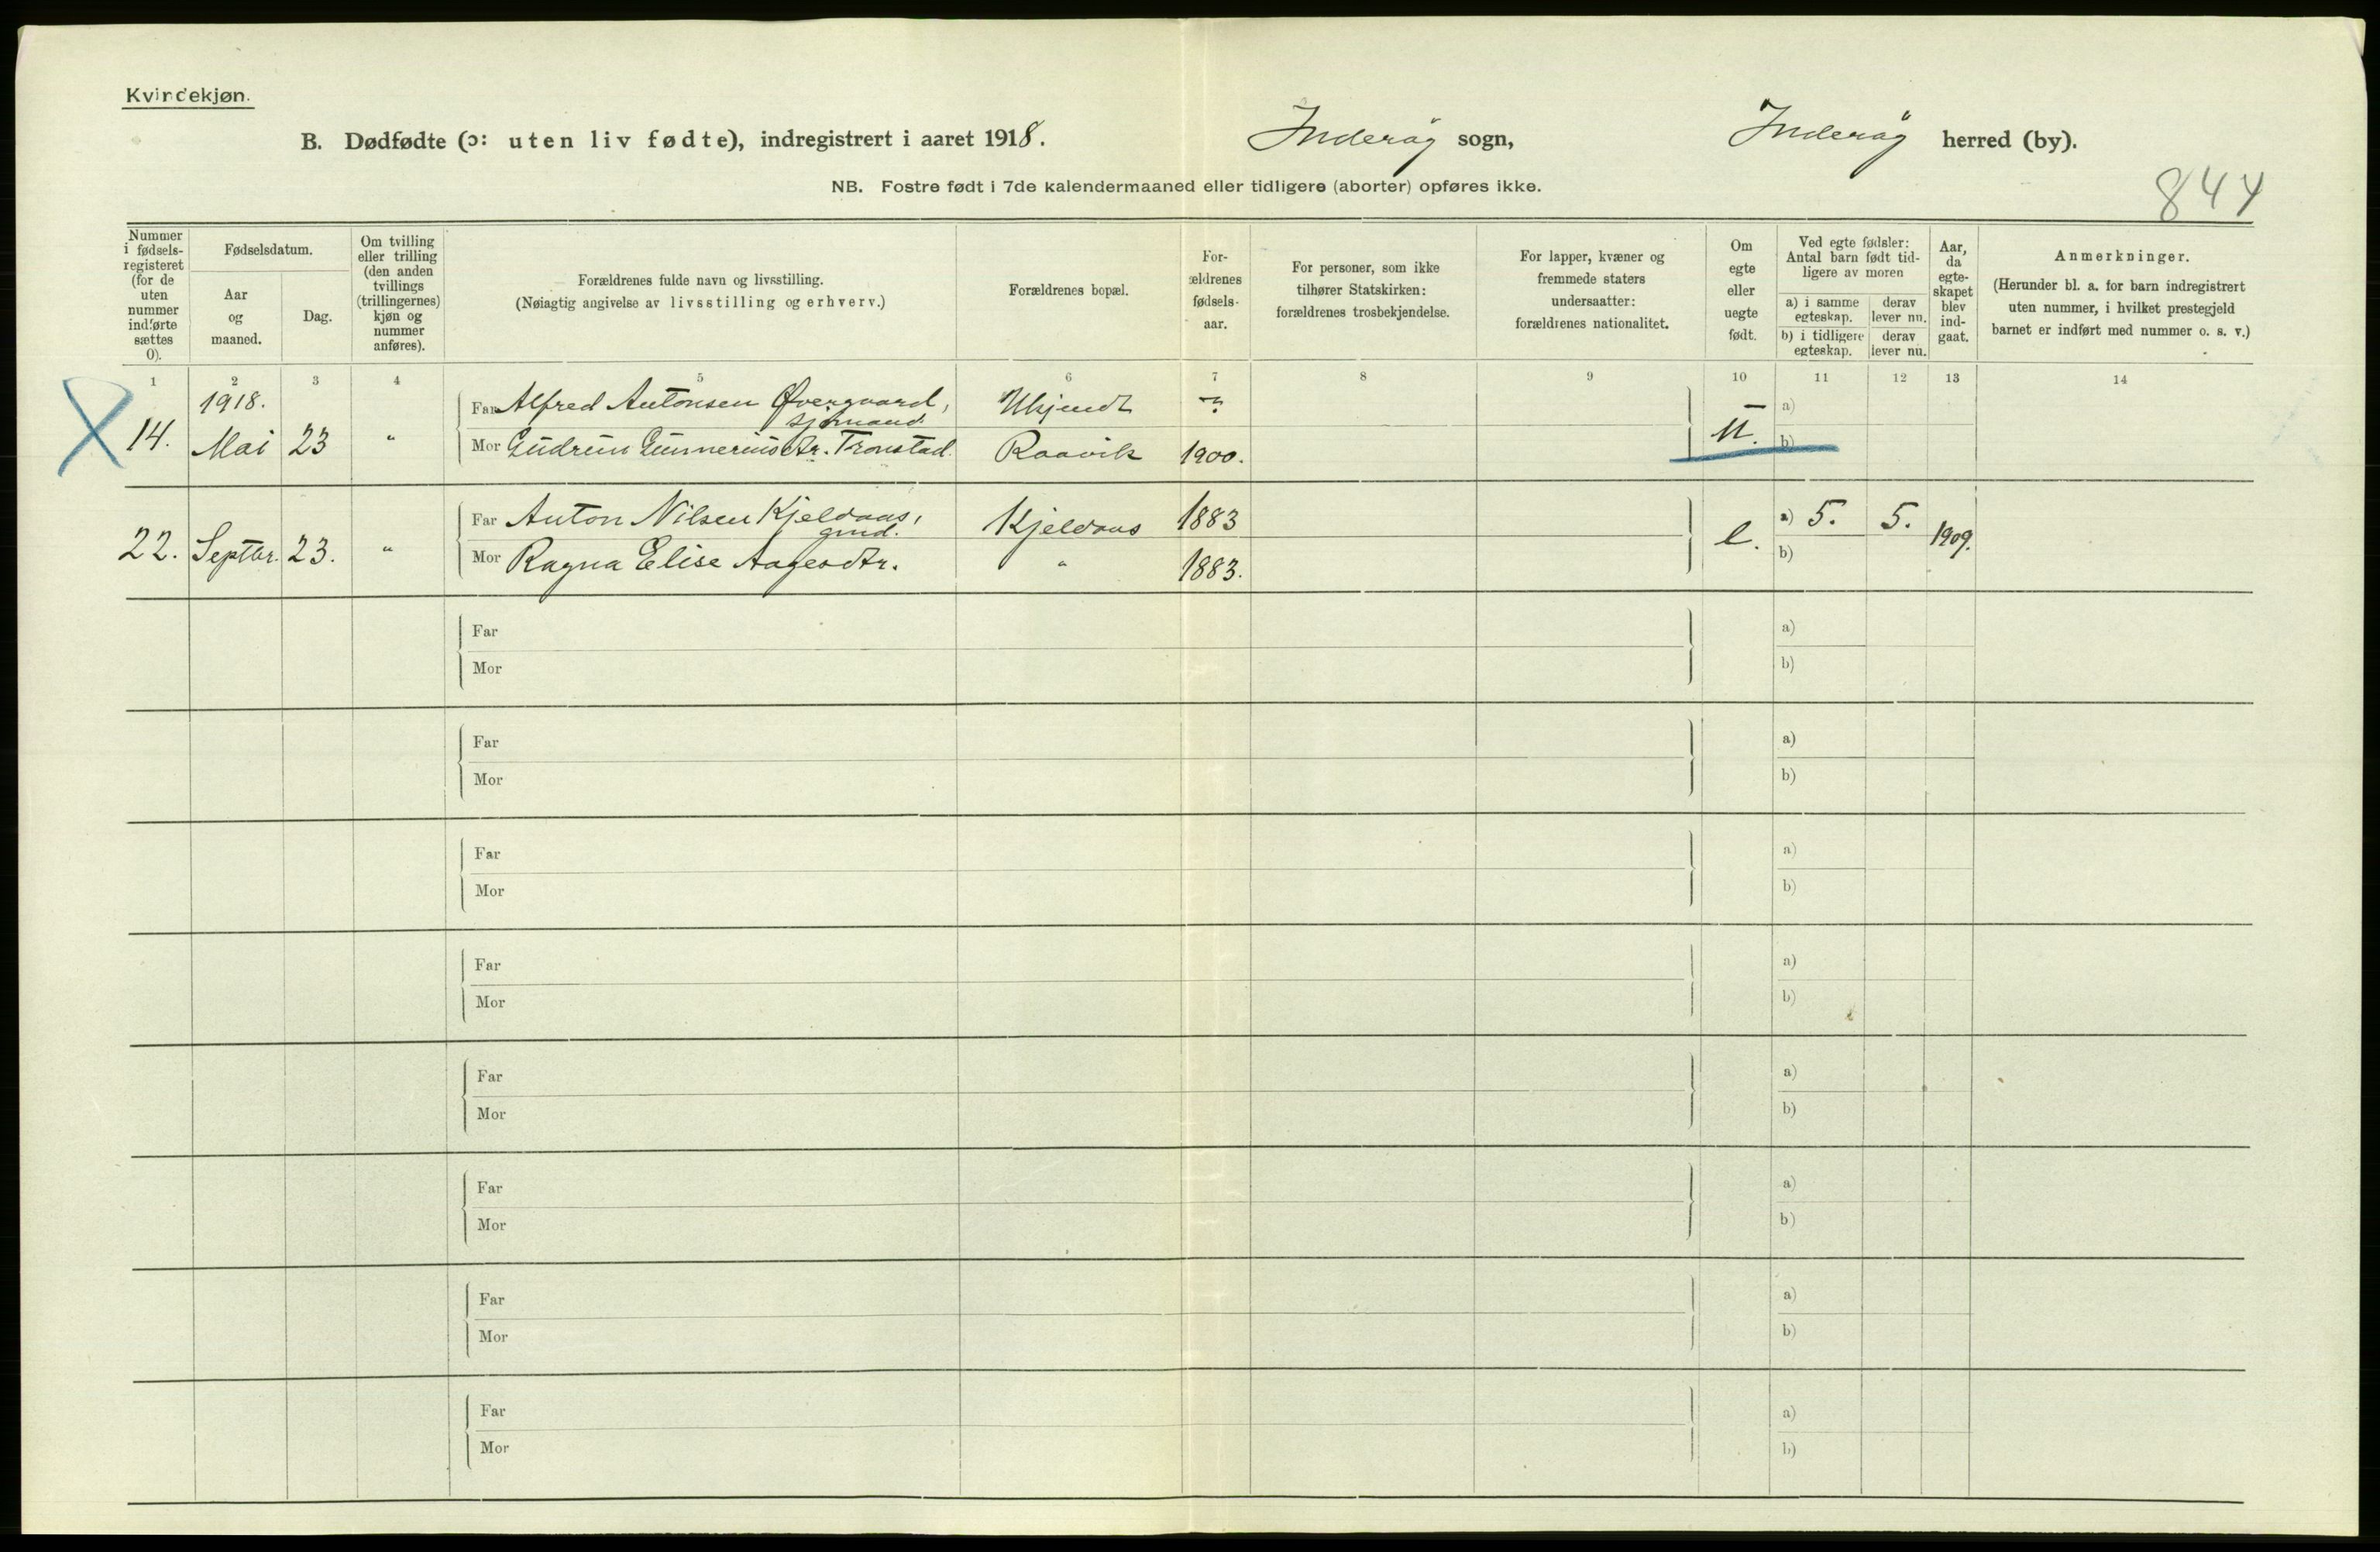 Kvindekjøn.
B. Dødfødte (ɔ: uten liv fødte), indregistrert i aaret 1918. Inderøy sogn, Inderøy herred (by).
NB. Fostre født i 7de kalendermaaned eller tidligere (aborter) opføres ikke.
844
Nummer i fødsels-registeret (for de uten nummer indførte sættes 0).
Fødselsdatum.
Aar og maaned.
Dag.
Om tvilling eller trilling (den anden tvillings (trillingernes) kjøn og nummer anføres).
Forældrenes fulde navn og livsstilling.
(Nøiagtig angivelse av livsstilling og erhverv.)
Forældrenes bopæl.
For-ældrenes fødsels-aar.
For personer, som ikke tilhører Statskirken: forældrenes trosbekjendelse.
For lapper, kvæner og fremmede staters undersaatter: forældrenes nationalitet.
Om egte eller uegte født.
Ved egte fødsler: Antal barn født tid-ligere av moren
a) i samme egteskap.
derav lever nu.
b) i tidligere egteskap.
derav lever nu.
Aar, da egte-skapet blev ind-gaat.
Anmerkninger.
(Herunder bl. a. for barn indregistrert uten nummer, i hvilket prestegjeld barnet er indført med nummer o. s. v.)
1 2 3 4 5 6 7 8 9 10 11 12 13 14
1918.
Far Alfred Antonsen Øvergaard, Ukjendt ? a)
sjømand.
14. Mai 23 " Mor Gudrun Gunneriusdtr. Tronstad. Raavik 1900. U. b)
Far Anton Nilsen Kjeldaas, Kjeldaas 1883 a) 5. 5.
gmd.
22. Septbr. 23. " Mor Ragna Elise Aagesdtr. " 1883. e. b) 1909.
Far a)
Mor b)
Far a)
Mor b)
Far a)
Mor b)
Far a)
Mor b)
Far a)
Mor b)
Far a)
Mor b)
Far a)
Mor b)
Far a)
Mor b)